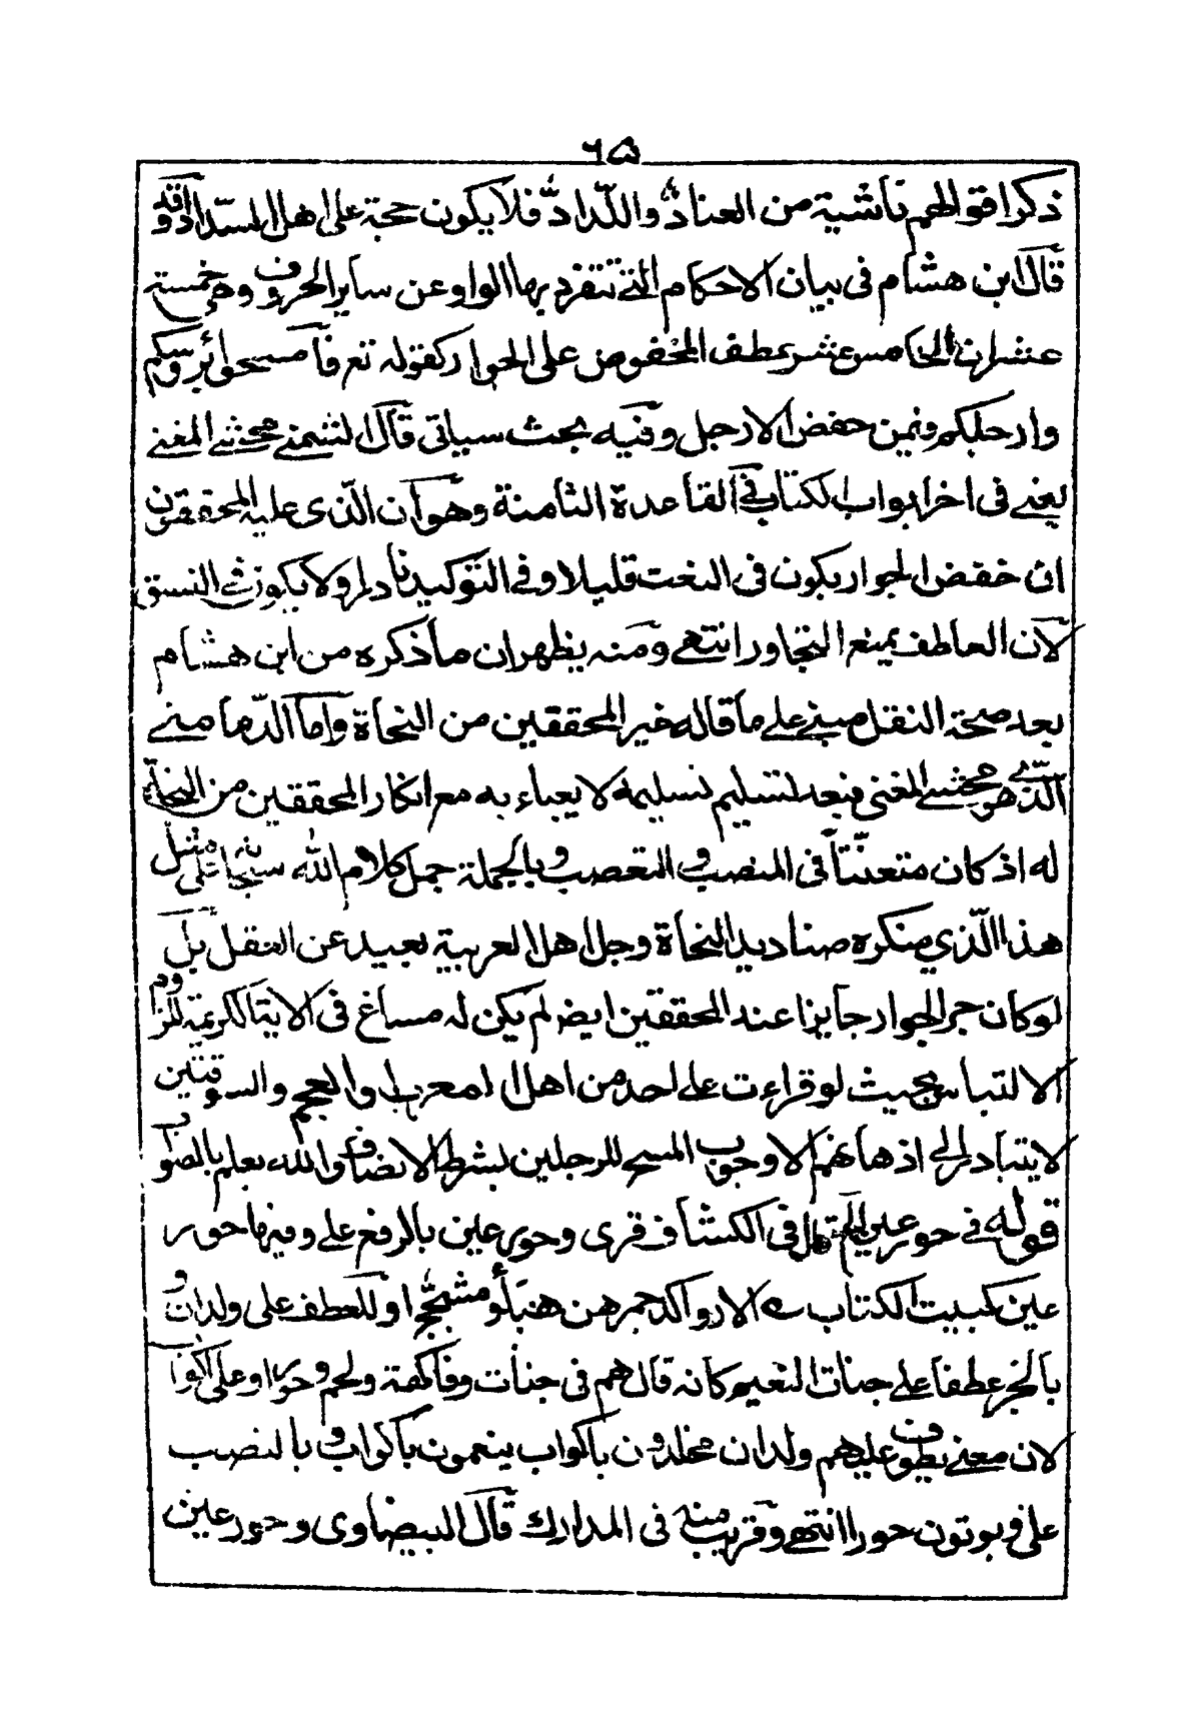 ٦٥
ذكر اقوالهم ناشية من العناد واللّداد فلا يكون حجة على اهل السّداد وقد
قال ابن هشام فى بيان الاحكام التے تنفرد بها الواو عن ساير الحروف وهے خمسة
عشر ان الخامس عشر عطف المخفوض على الجوار كقوله تعر فامسحوا برؤسكم
وارجلكم فيمن خفض الارجل وفيه بحث سياتى قال الشمنے محشے المغنے
يعنے فى اخر ابواب الكتاب فے القاعدة الثامنة وهو ان الّذى عليه المحققون
ان خفض الجوار يكون فى النعت قليلا وفے التوكيد نادرا ولا يكون فے النسق
لان العاطف يمنع التجاور انتهے ومنه يظهر ان ما ذكره من ابن هشام
بعد صحة النقل مبنے علے ما قاله خير المحققين من النحاة واما الدّمامينے
الّذے هو محشے المغنى فبعد تسليم تسليمه لا يعباء به مع انكار المحققين من النحاة
له اذ كان متعنّتا فى النصب و التعصب وبالجملة حمل كلام الله سبحانه على مثل
هذا الّذي ينكره صناديد النحاة وجل اهل العربية بعيد عن العقل بل
لو كان جر الجوار جايزا عند المحققين ايضا لم يكن له مساغ فى الاية الكريمة للزوم
الالتباس بحيث لو قراءت على احد من اهل العرب والعجم والسوقيين
لا يتبادر الے اذهانهم الا وجوب المسح للرجلين بشرط الانصاف والله يعلم بالصواب
قوله فے حور عين الخ قال فى الكشاف قرى وحور عين بالرفع على وفيها حور
عين كبيت الكتاب ؎ الا رواكد جمرهن هباء و مشجّج او للعطف على ولدان و
بالجر عطفا علے جنات النعيم كانه قال هم فى جنات وفاكهة ولحم وحور او على اكواب
لان معنے يطوف عليهم ولدان مخلدون باكواب ينعمون باكواب و بالنصب
على ويوتون حورا انتهے وقريب منه فى المدارك قال البيضاوى وحور عين